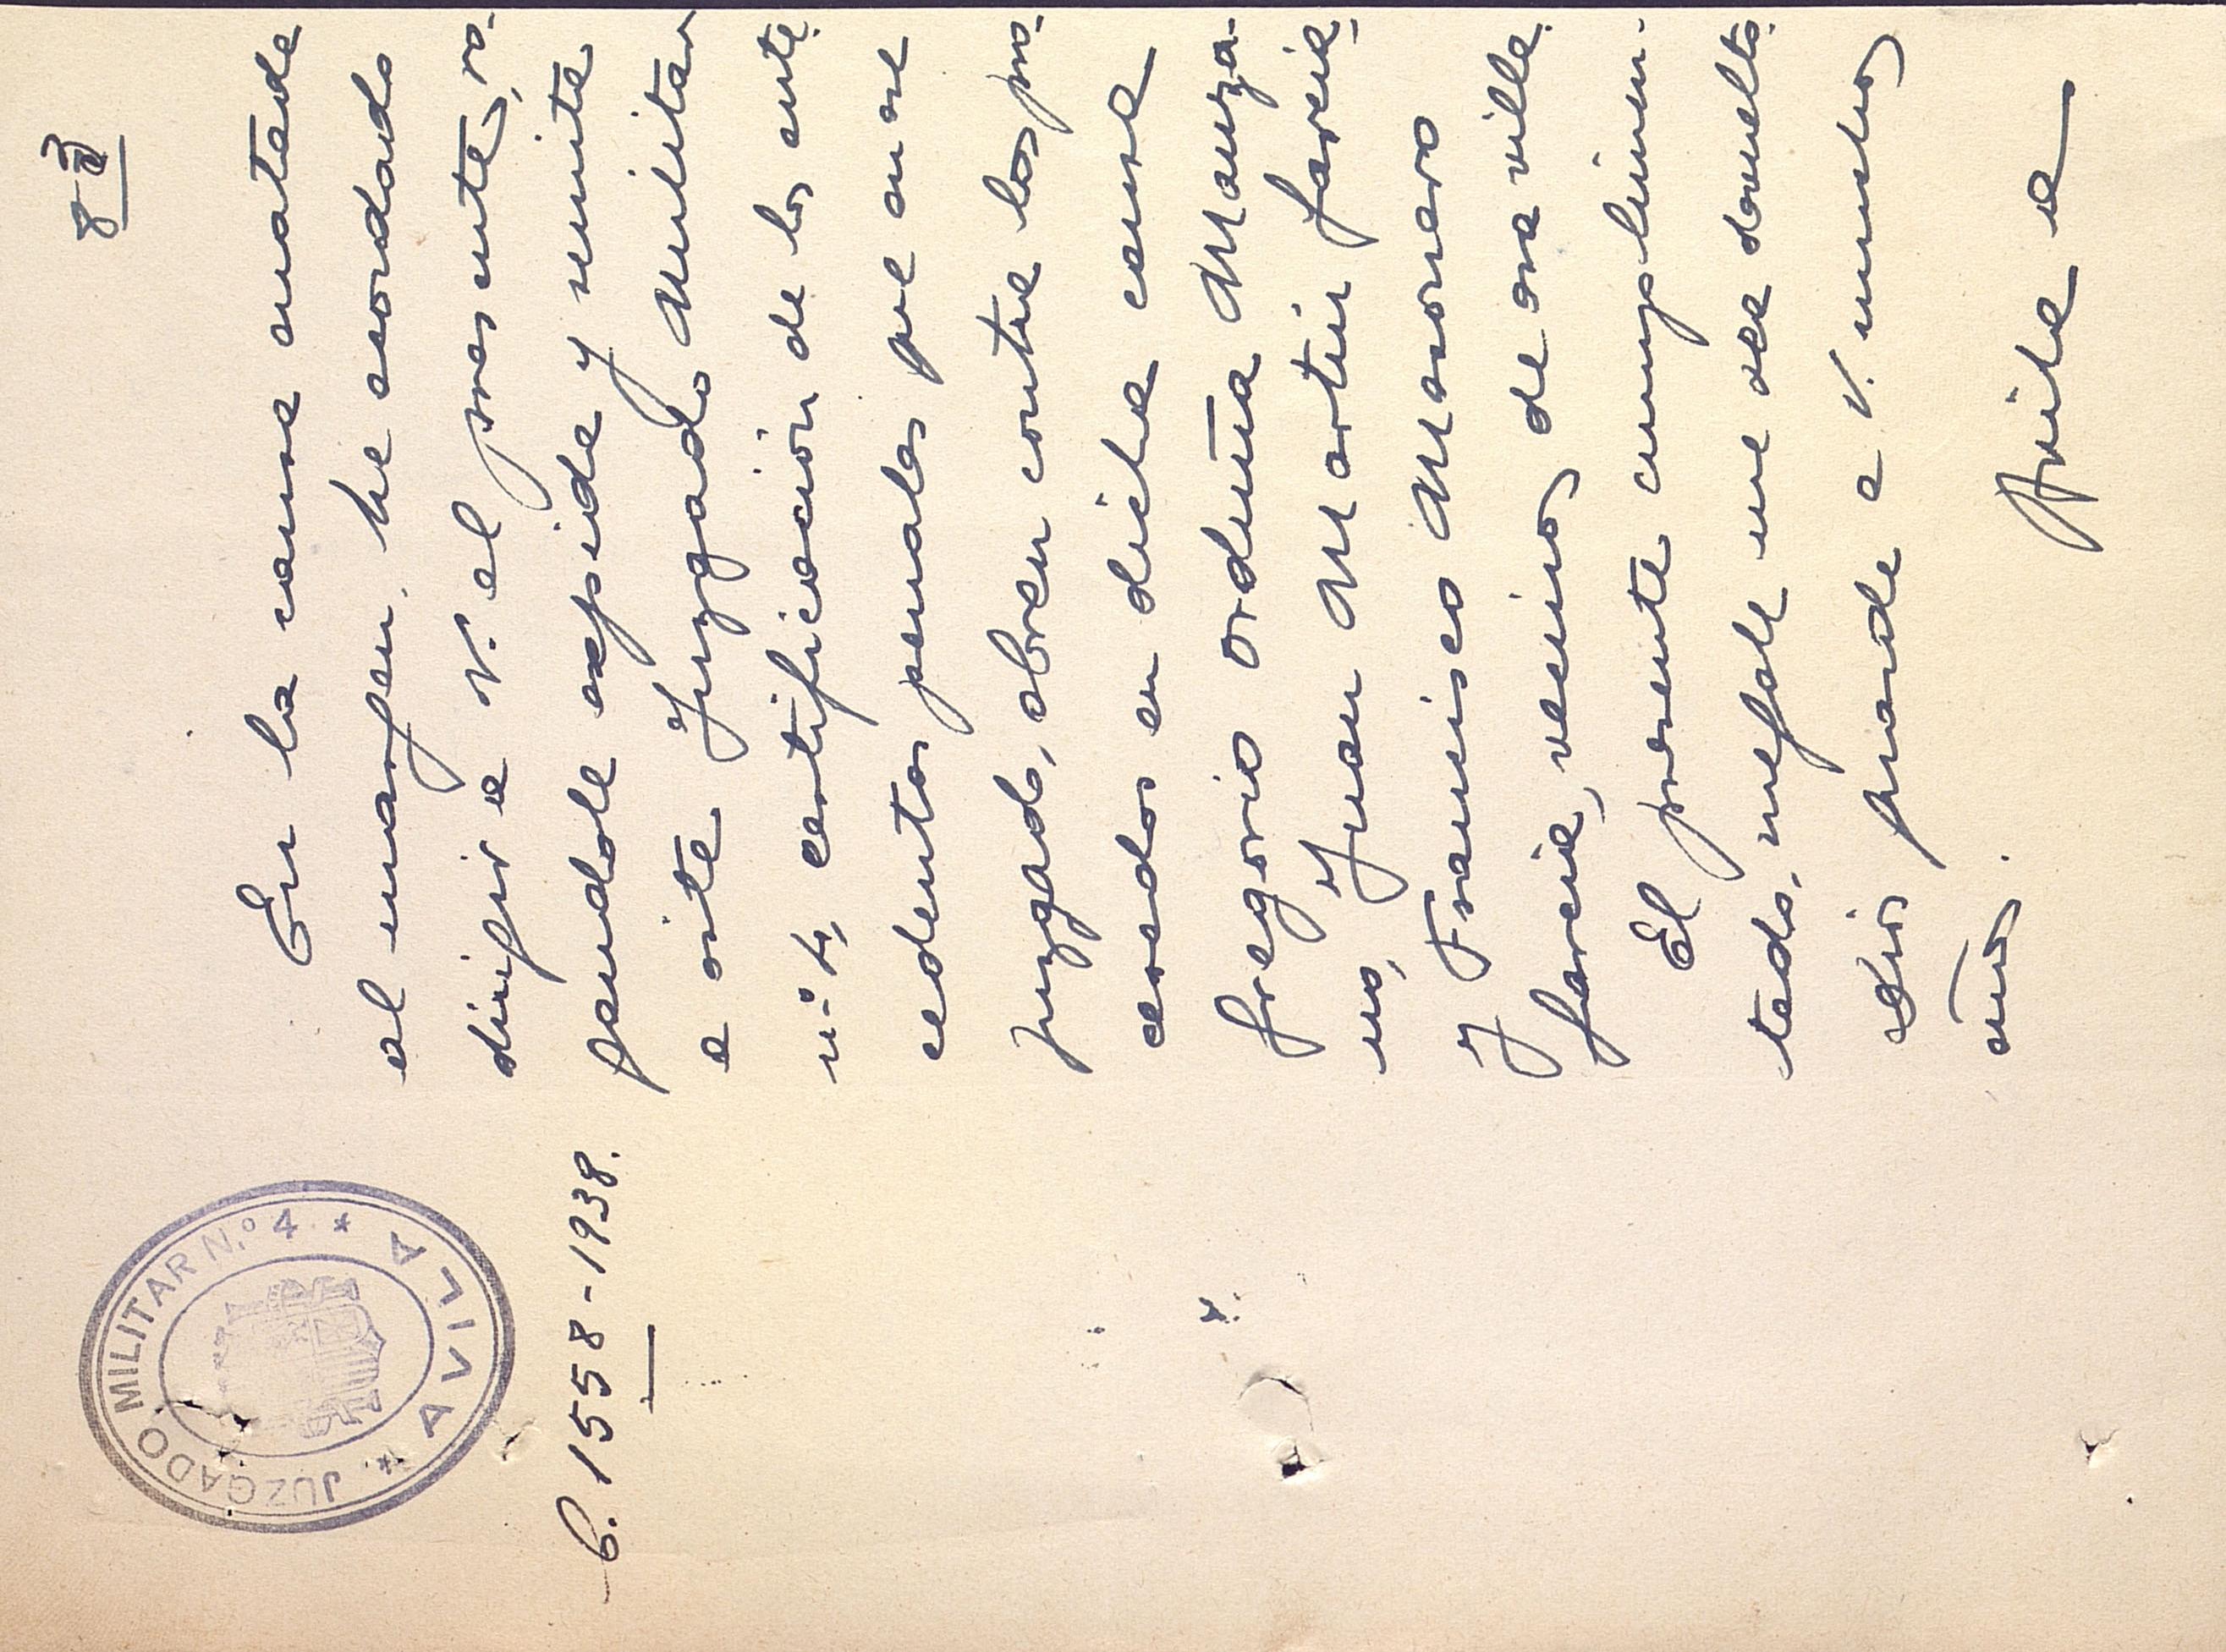 8-3
JUZGADO MILITAR N.º 4
* AVILA *
C. 1558-1938.
En la causa anotada
al margen, he acordado
dirigir a V. el presente, ro-
gandole expida y remita
a este Juzgado Militar
nº 4, certificación de los ante
cedentes penales que en ese
juzgado, obren contra los pro-
cesados en dicha causa
Gregorio Orduña Manza-
no, Juan Martin Garcia,
y Francisco Masonero
Garcia, vecinos de esa villa.
El presente cumplimen-
tado, ruegole me sea devuelto.
Dios guarde a V. muchos
años.
Avila a